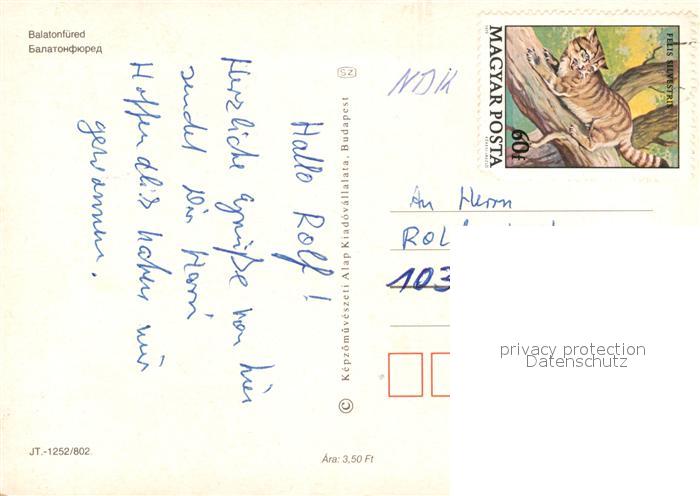 Balatonfüred
Балатонфюред
Hallo Rolf!
Herzliche Grüße von hier
sendet Dir Harri
Hoffendlich haben wir
gewonnen.
SZ
Képzőművészeti Alap Kiadóvállalata, Budapest
©
NDK
MAGYAR POSTA
60f
FELIS SILVESTRIS
An Herrn
ROL
103
privacy protection
Datenschutz
JT.-1252/802
Ára: 3,50 Ft